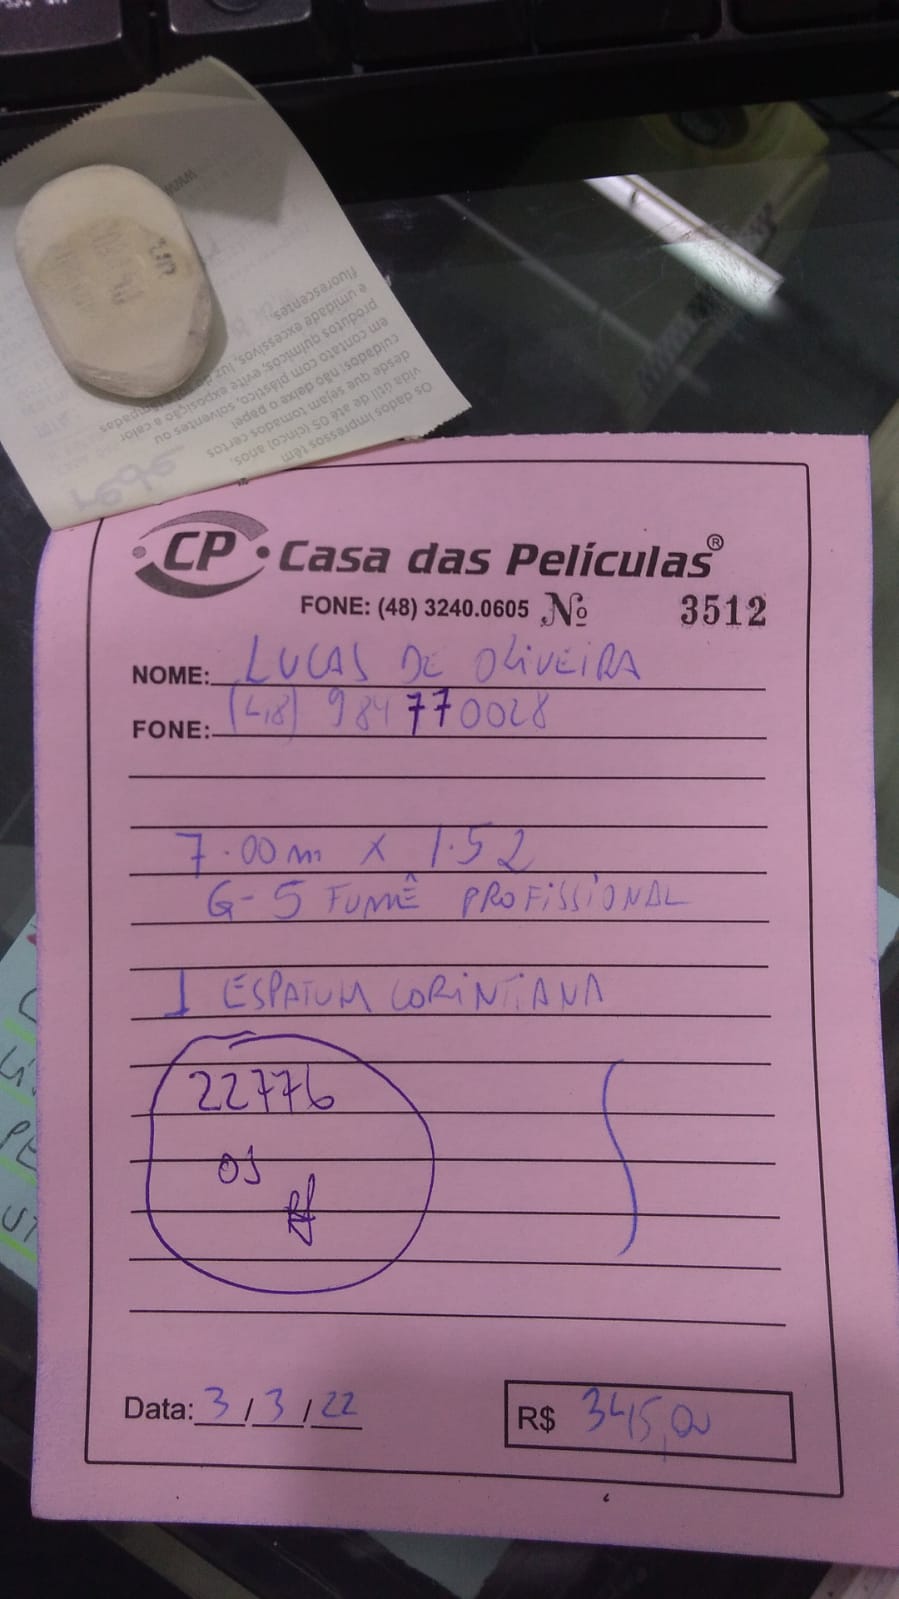 Os dados impressos têm
vida útil de até 05 (cinco) anos,
desde que sejam tomados certos
cuidados: não deixe o papel
em contato com plástico, solventes ou
produtos químicos, evite exposição a calor
e umidade excessivos, luz
fluorescentes
rede
CP Casa das Películas®
FONE: (48) 3240.0605 Nº 3512
NOME: LUCAS DE OLIVEIRA
FONE: (48) 984770028
7.00m x 1.52
G-5 FUMÊ PROFISSIONAL
1 ESPATULA CORINTIANA
22776
Data: 3/3/22
R$ 345,00